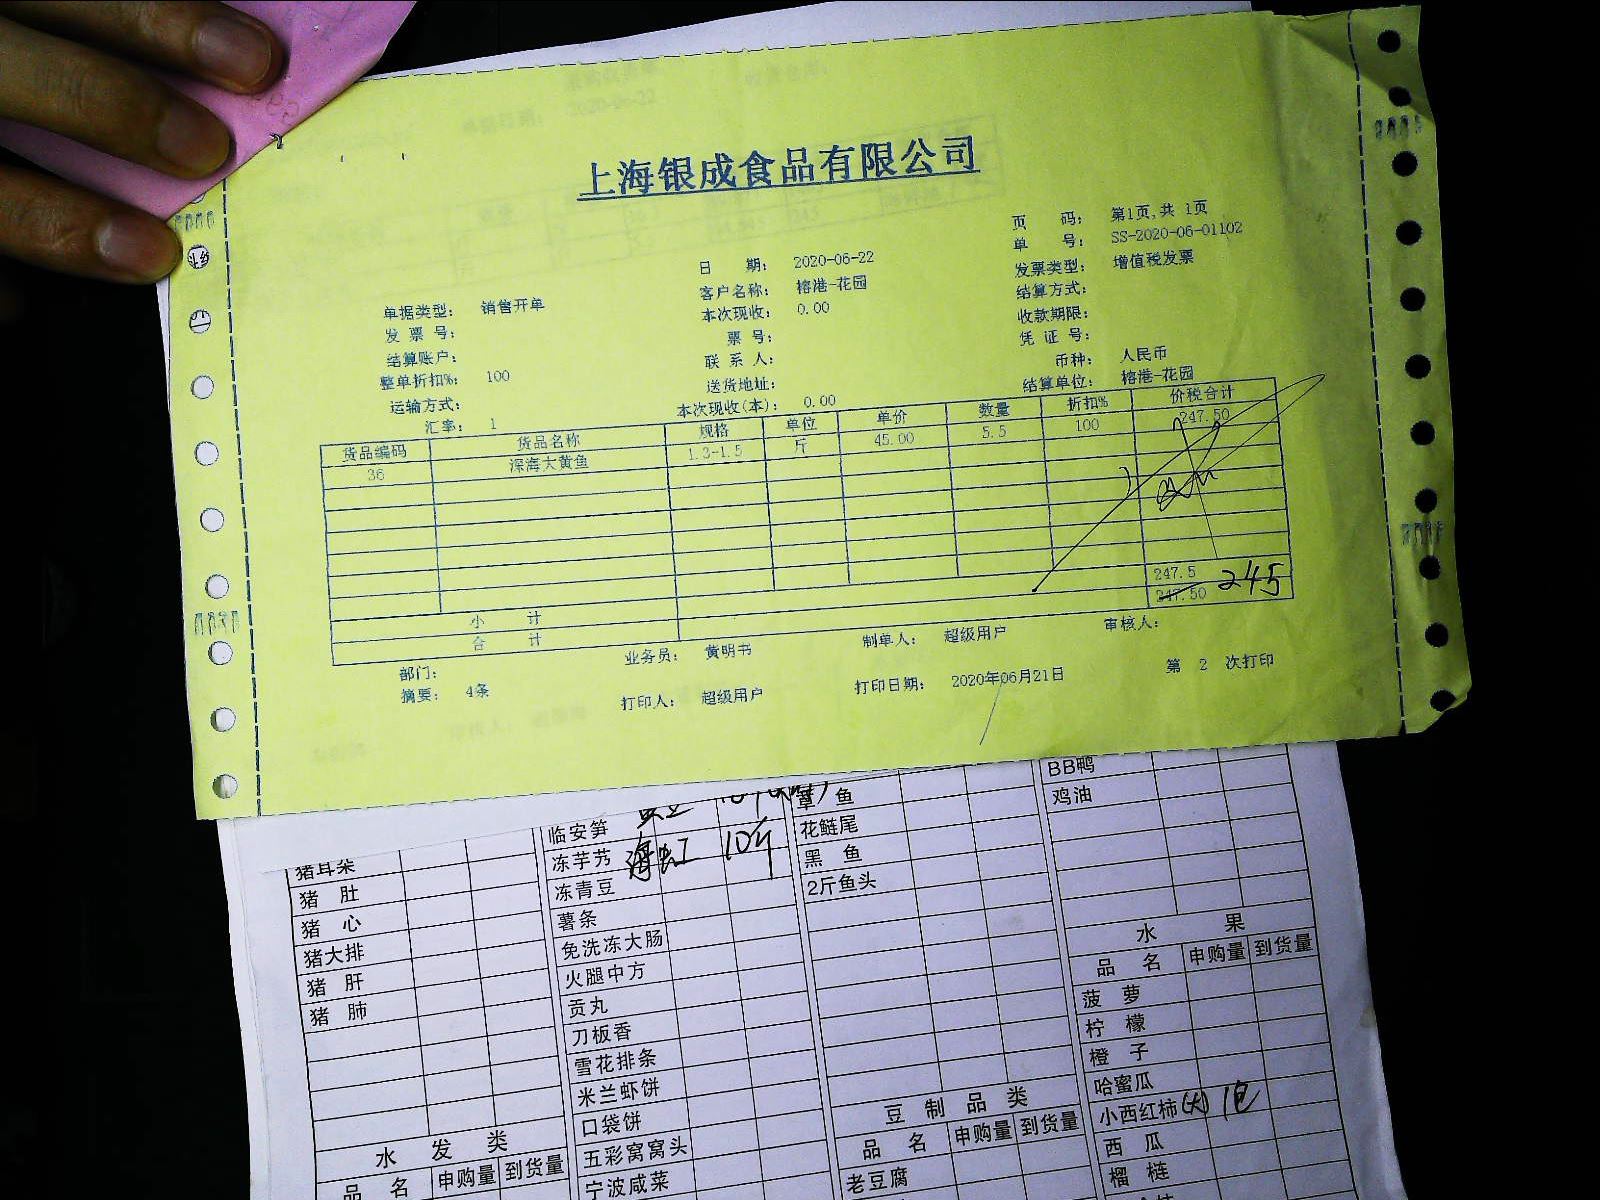 上海银成食品有限公司
页 码： 第1页,共 1页
单 号： SS-2020-06-01102
日 期： 2020-06-22 发票类型： 增值税发票
单据类型： 销售开单 客户名称： 榕港-花园 结算方式：
发 票 号： 本次现收： 0.00 收款期限：
结算账户： 票 号： 凭 证 号：
整单折扣%： 100 联 系 人： 币种： 人民币
运输方式： 送货地址： 结算单位： 榕港-花园
汇率： 1 本次现收(本)： 0.00
货品编码 货品名称 规格 单位 单价 数量 折扣% 价税合计
36 深海大黄鱼 1.3-1.5 斤 45.00 5.5 100 247.50
小 计 247.5
合 计 247.50 245
部门： 业务员： 黄明书 制单人： 超级用户 审核人：
摘要： 4条 打印人： 超级用户 打印日期： 2020年06月21日 第 2 次打印
猪耳朵
猪 肚
猪 心
猪大排
猪 肝
猪 肺
水 发 类
品 名 申购量 到货量
临安笋
冻芋艿 海虹 10斤
冻青豆
薯条
免洗冻大肠
火腿中方
贡丸
刀板香
雪花排条
米兰虾饼
口袋饼
五彩窝窝头
宁波咸菜
章 鱼
花鲢尾
黑 鱼
2斤鱼头
豆 制 品 类
品 名 申购量 到货量
老豆腐
BB鸭
鸡油
水 果
品 名 申购量 到货量
菠 萝
柠 檬
橙 子
哈蜜瓜
小西红柿(大) 1包
西 瓜
榴 梿